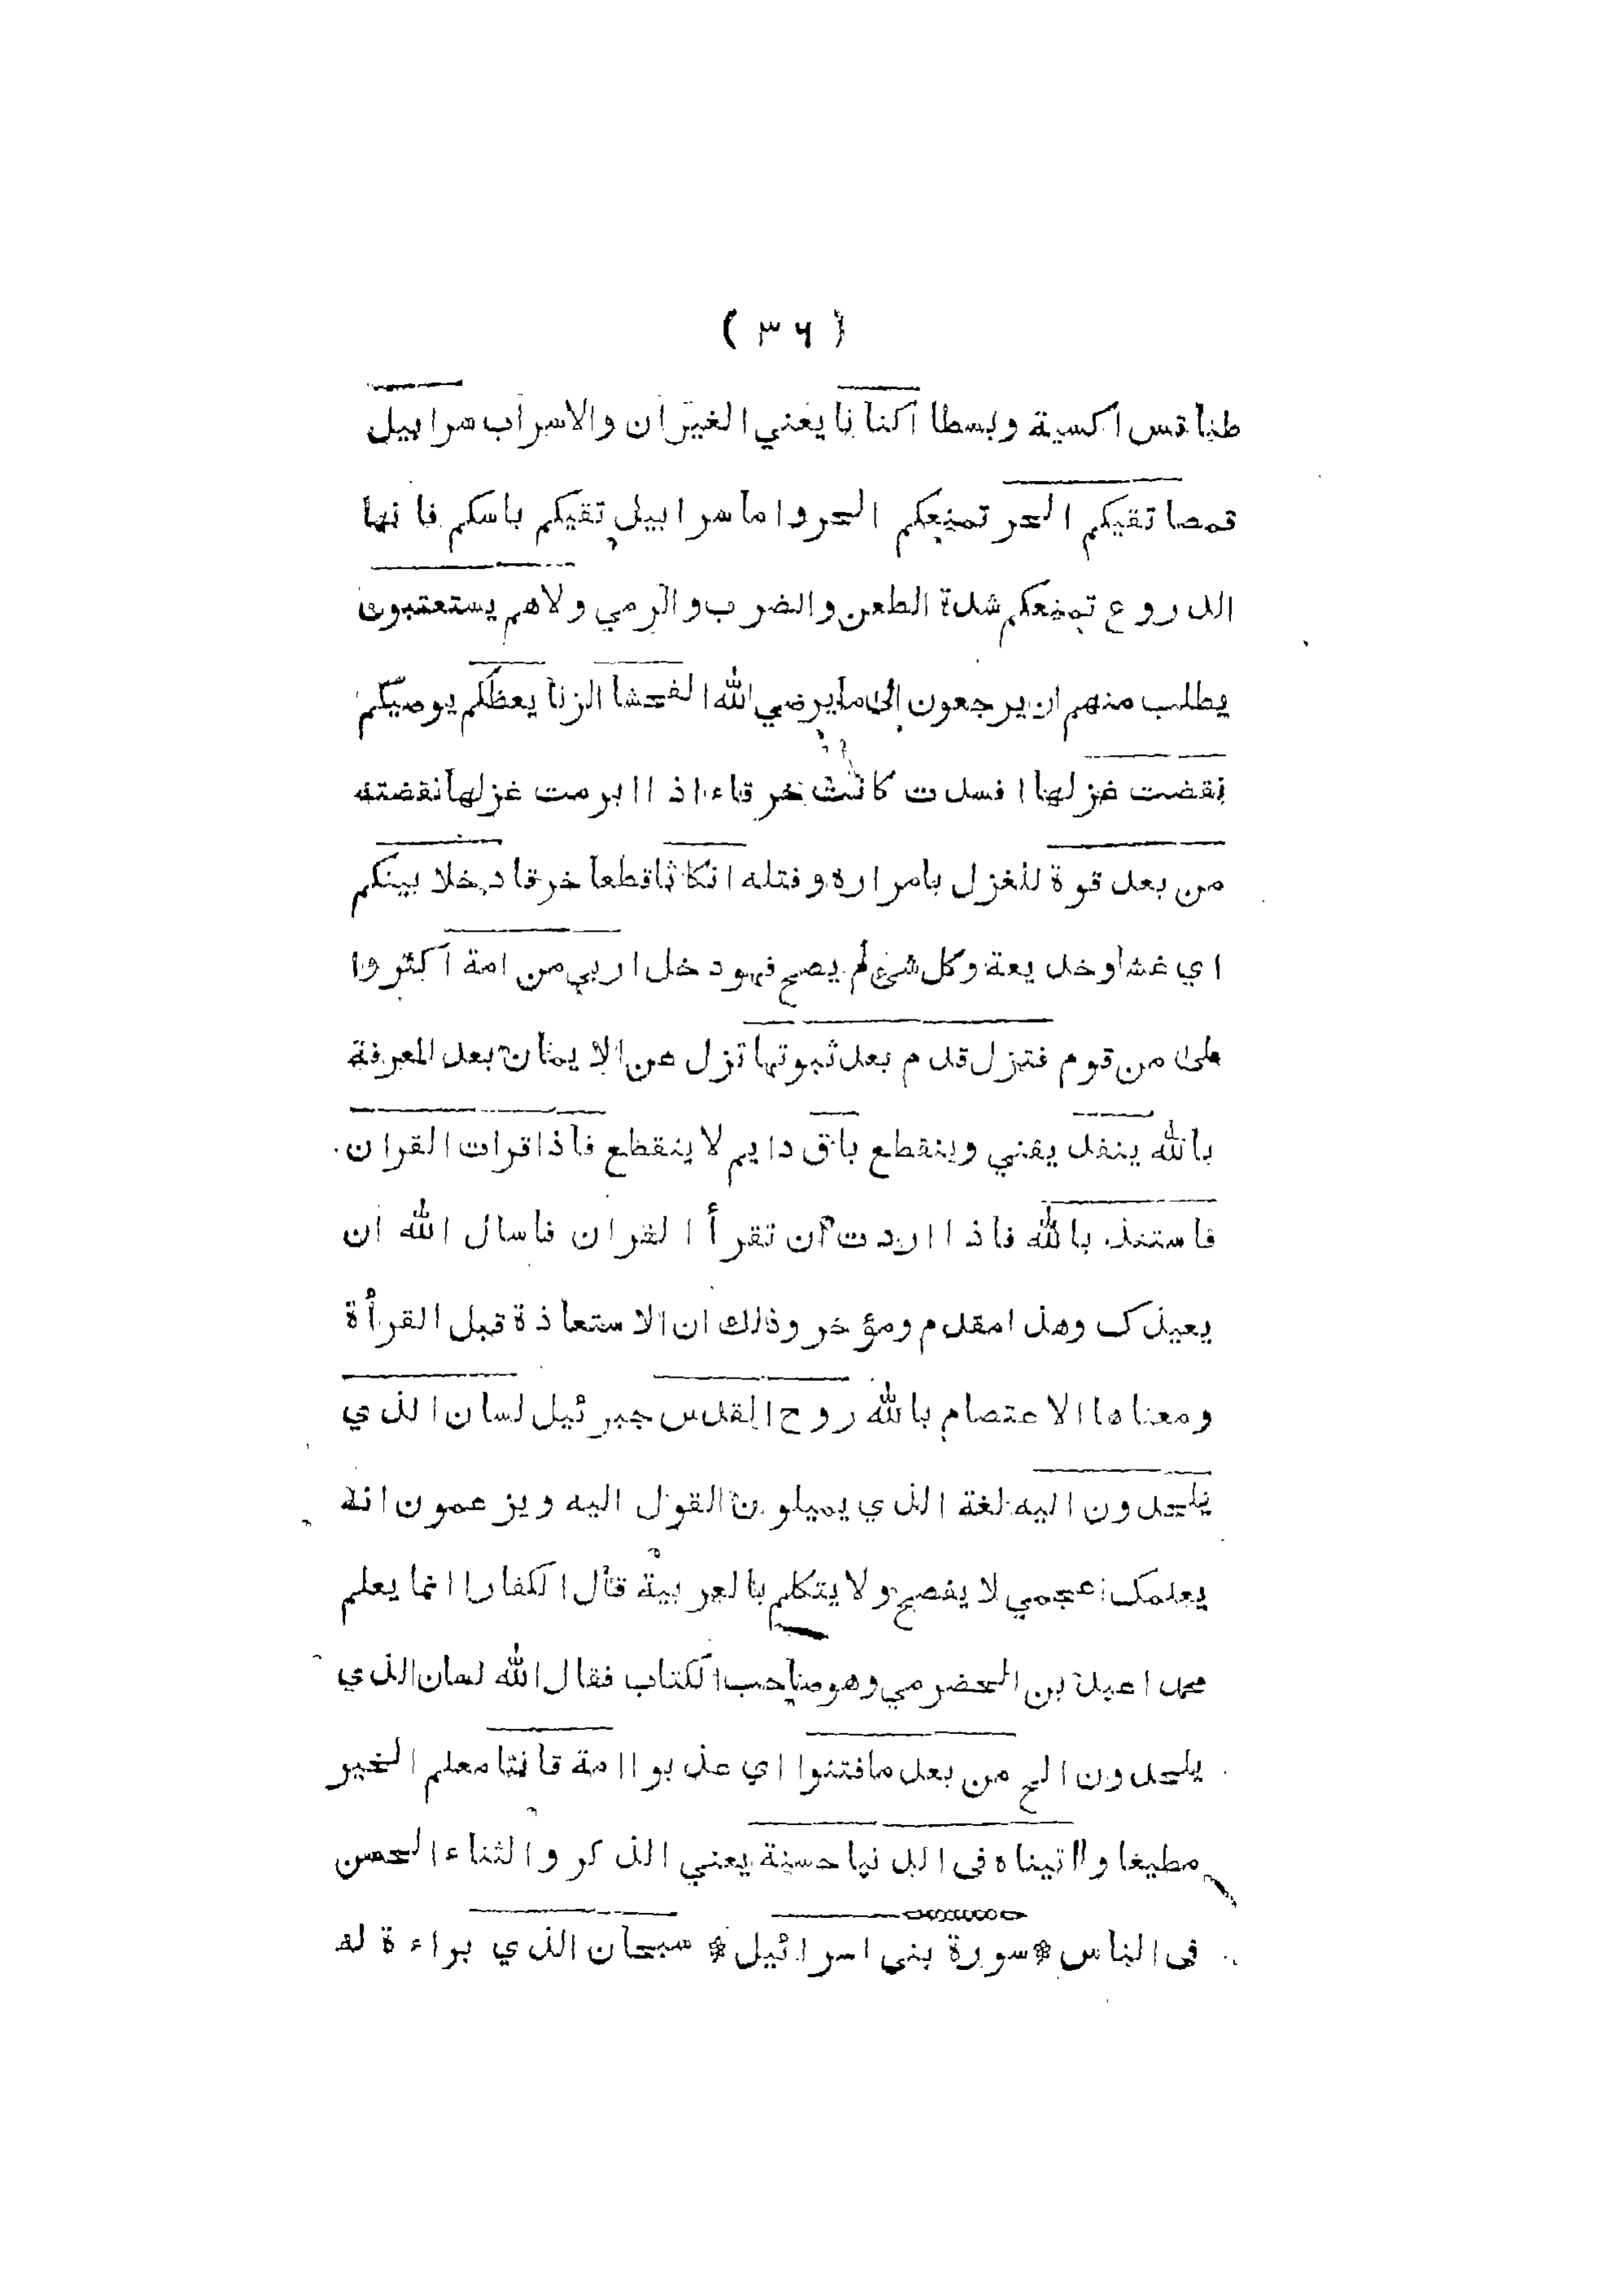 ( ٣٦ )
طنافس اكسية وبسطا اكنانا يعني الغيران والاسراب سرابيل
قمصا تقيكم الحر تمنعكم الحر واما سرابيل تقيكم باسكم فانها
الدروع تمنعكم شدة الطعن والضرب والرمي ولاهم يستعتبون
يطلب منهم ان يرجعون الى ما يرضي الله الفحشا الزنا يعظكم يوصيكم
نقضت غزلها افسدت كانت خرقاء اذا ابرمت غزلها نقضته
من بعد قوة للغزل بامراره وفتله انكاثا قطعا خرقا دخلا بينكم
اي غشا وخديعة وكل شئ لم يصح فهو دخل اربي من امة اكثروا
على من قوم فتزل قدم بعد ثبوتها تزل عن الايمان بعد المعرفة
بالله ينفد يفني وينقطع باق دايم لا ينقطع فاذا قرات القران
فاستعذ بالله فاذا اردت ان تقرأ القران فاسال الله ان
يعيذك وهذا مقدم ومؤخر وذلك ان الاستعاذة قبل القرأة
ومعناها الاعتصام بالله روح القدس جبرئيل لسان الذي
يلحدون اليه لغة الذي يميلون القول اليه ويزعمون انه
يعلمك اعجمي لا يفصح ولا يتكلم بالعربية قال الكفار انما يعلم
محمدا عبد بن الحضرمي وهو صاحب الكتاب فقال الله لسان الذي
يلحدون الخ من بعد ما فتنوا اي عذبوا امة قانتا معلم الخير
مطيعا واتيناه فى الدنيا حسنة يعني الذكر والثناء الحسن
فى الناس * سورة بنى اسرائيل * سبحان الذي براءة له